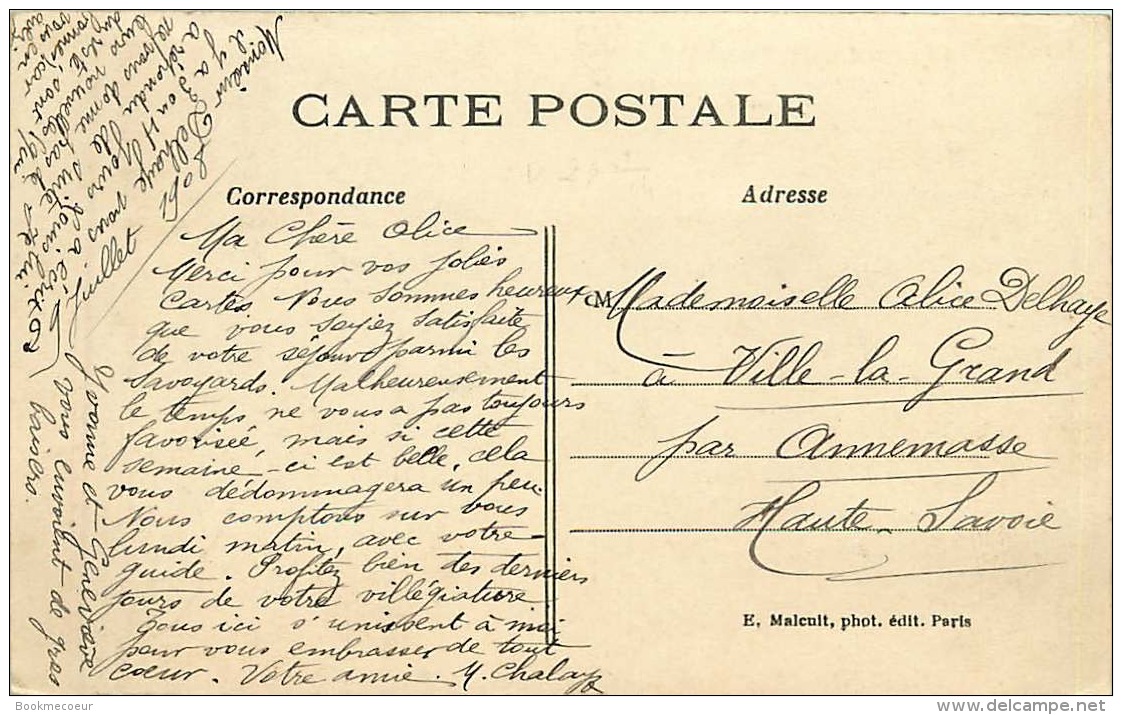 CARTE POSTALE
Correspondance
Adresse
Ma Chère Alice
Merci pour vos jolies
cartes. Nous sommes heureux
que vous soyiez satisfaite
de votre séjour parmi les
Savoyards. Malheureusement
le temps ne vous a pas toujours
favorisée, mais si cette
semaine-ci est belle, cela
vous dédommagera un peu.
Nous comptons sur vous
lundi matin, avec votre
guide. Profitez bien des derniers
jours de votre villégiature
Tous ici s'unissent à moi
pour vous embrasser de tout
coeur. Votre amie. M. Chalaye
Yvonne et Geneviève
vous envoient de gros
baisers.
Monsieur Delhaye
il y a
juillet
M
Mademoiselle Alice Delhaye
à Ville-la-Grand
par Annemasse
Haute-Savoie
E. Malcuit, phot. édit. Paris
Bookmecoeur
www.delcampe.net